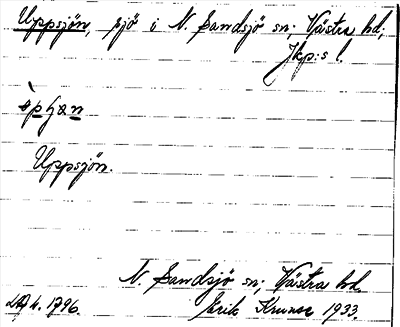 Uppsjön, sjö i N. Sandsjö sn; Västra hd;
Jkp:s l.
Uppsjön.
N. Sandsjö sn; Västra hd.
Erik Kruuse 1933.